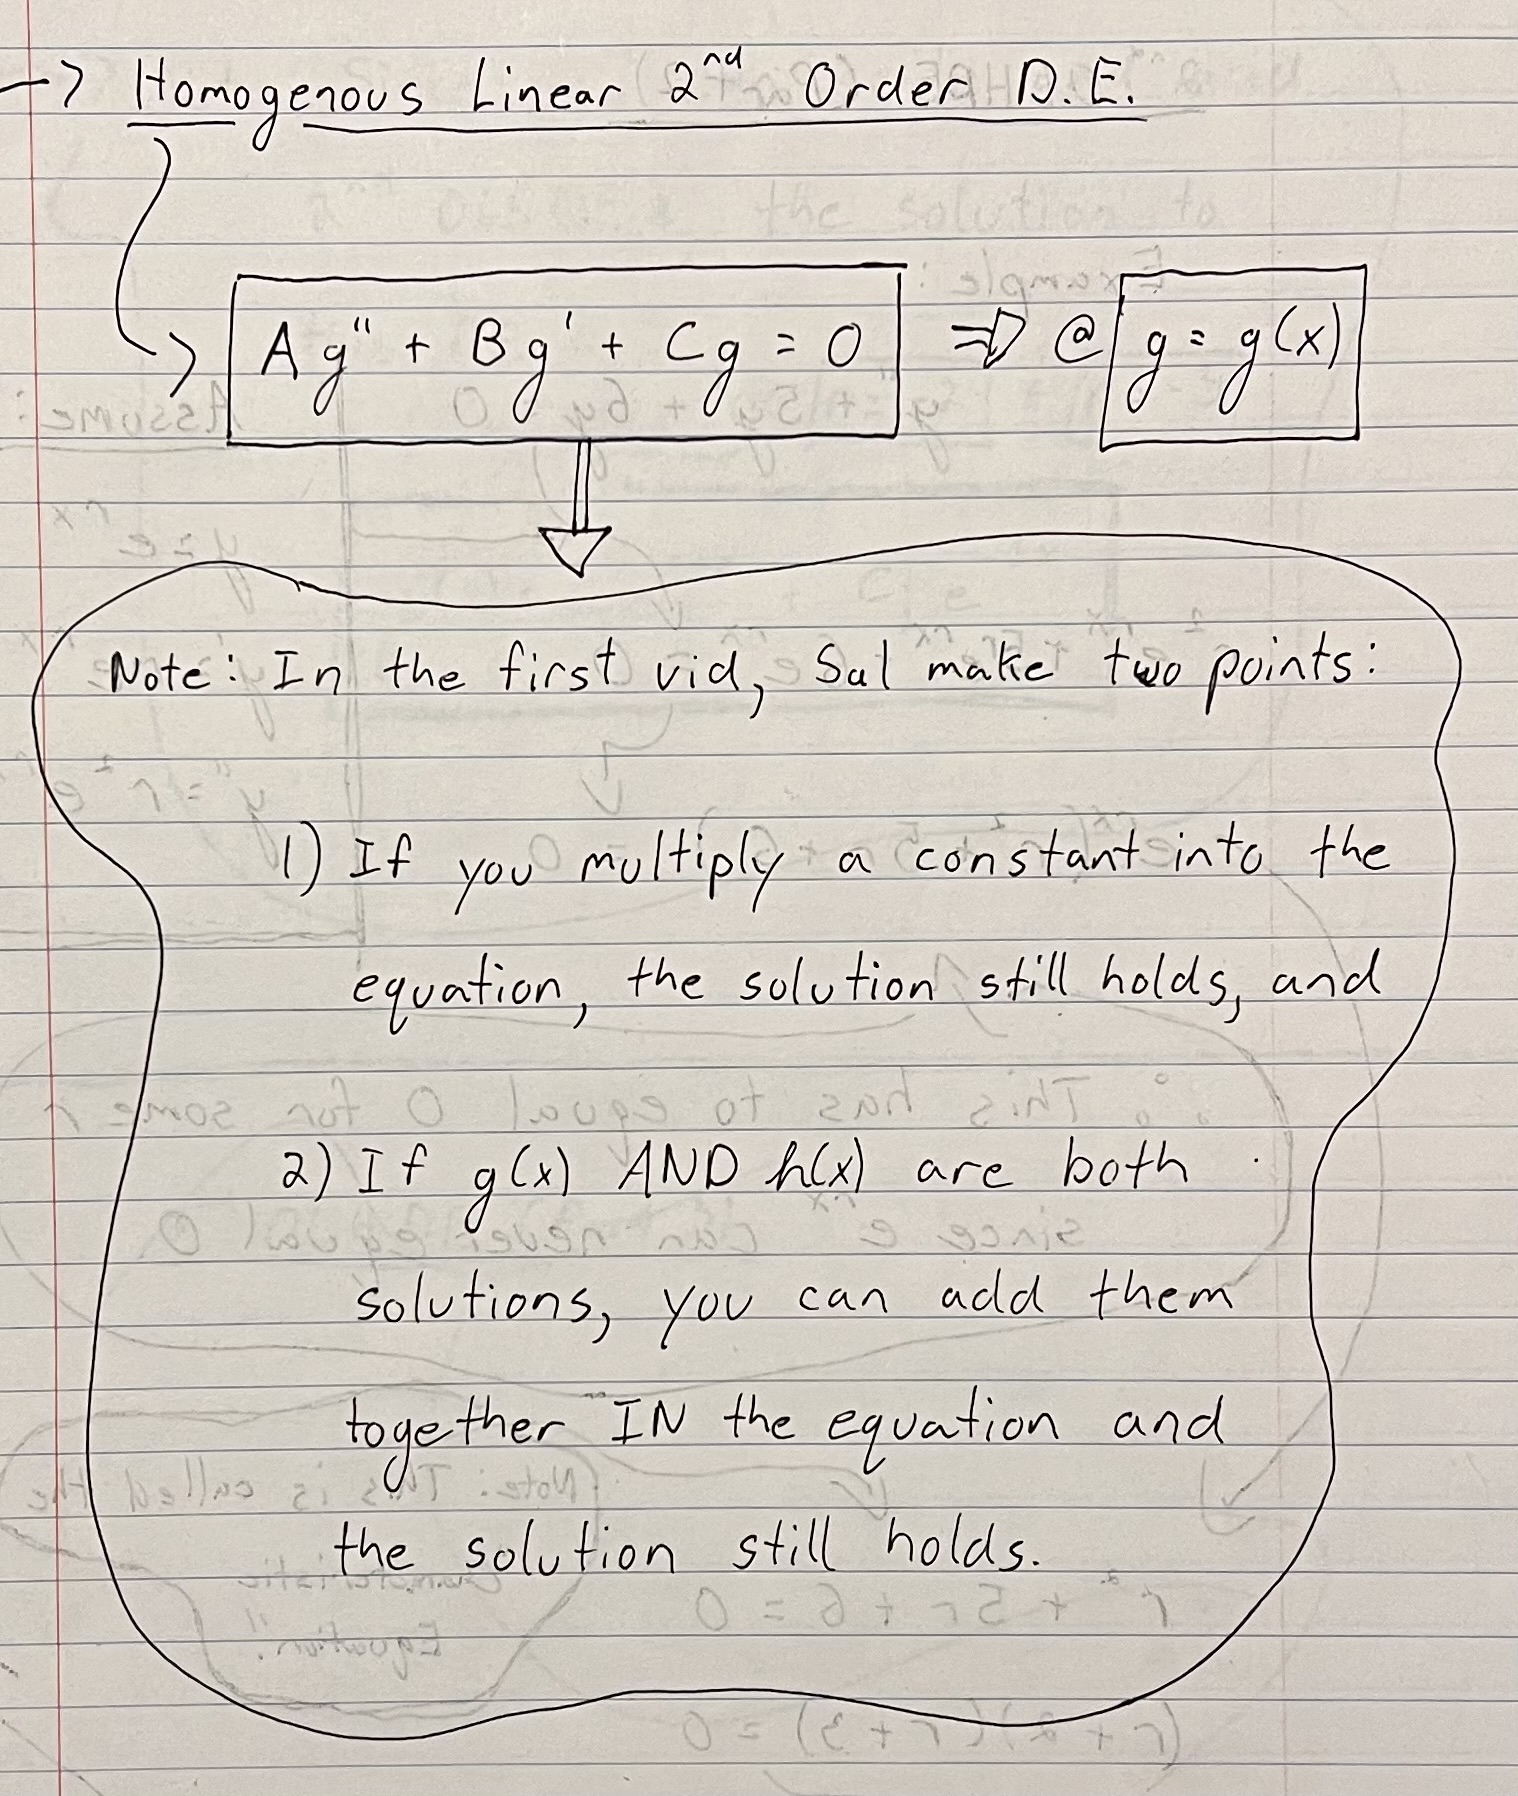 -> Homogenous Linear 2nd Order D.E.
Ag" + Bg' + Cg = 0 => @ g = g(x)
Note: In the first vid, Sal make two points:
1) If you multiply a constant into the
equation, the solution still holds, and
2) If g(x) AND h(x) are both
solutions, you can add them
together IN the equation and
the solution still holds.